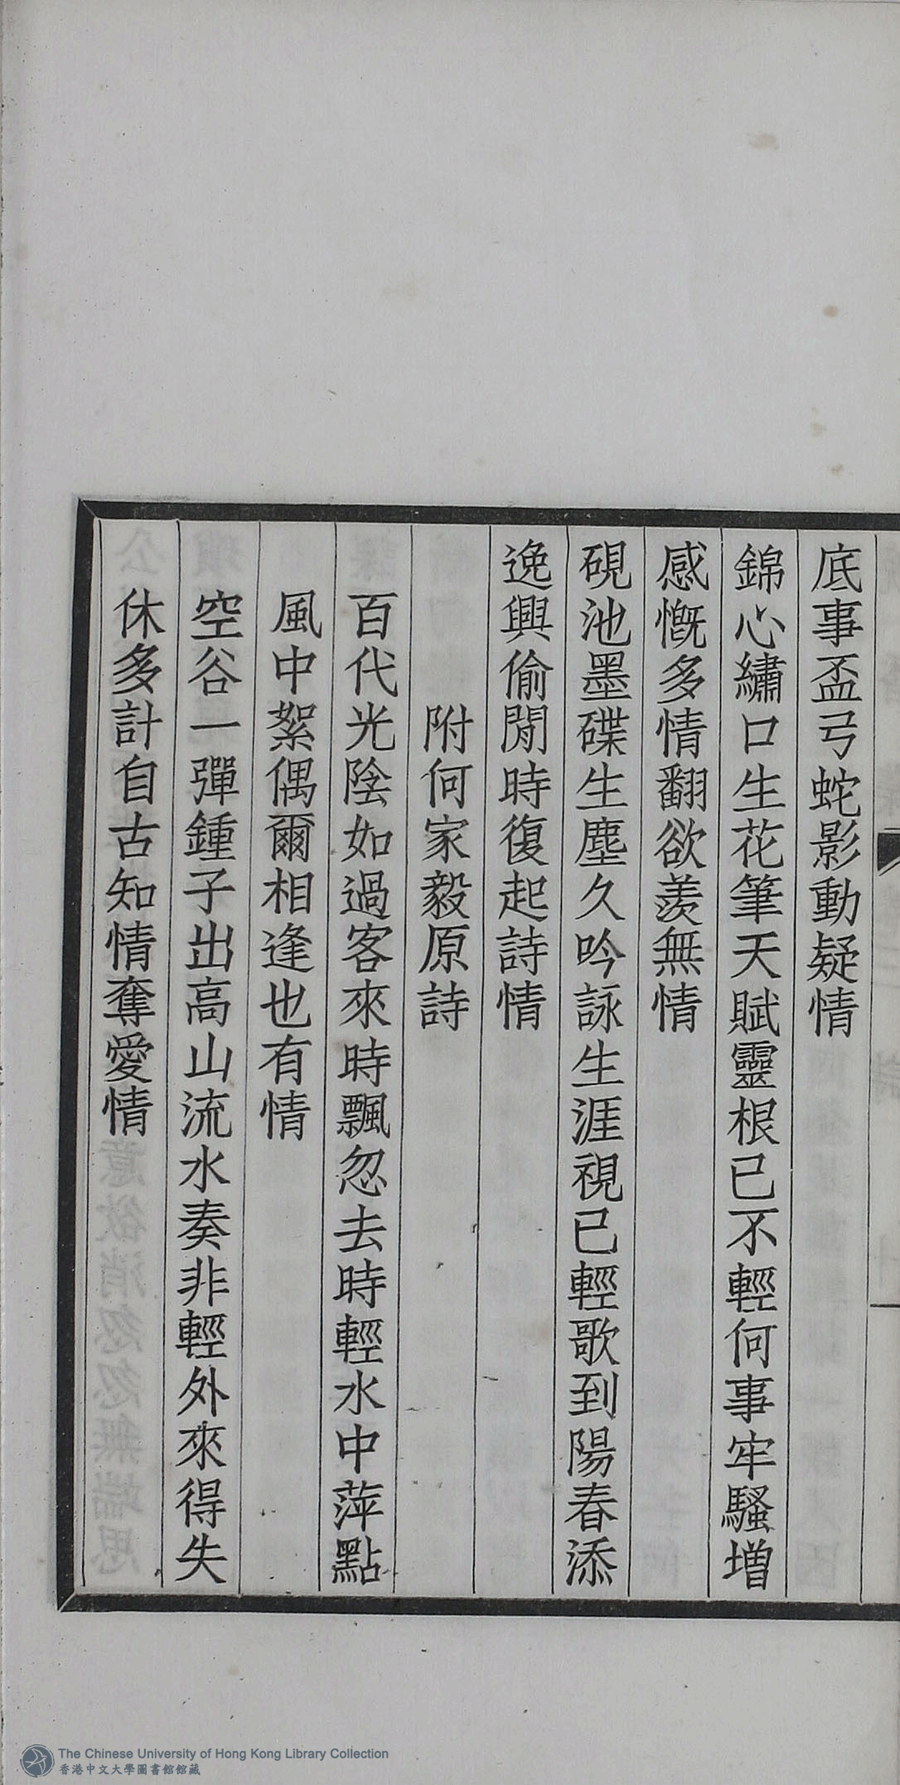 底事盃弓蛇影動疑情
錦心繡口生花筆天賦靈根已不輕何事牢騷增
感慨多情翻欲羨無情
硯池墨碟生塵久吟詠生涯視已輕歌到陽春添
逸興偷閒時復起詩情
附何家毅原詩
百代光陰如過客來時飄忽去時輕水中萍點
風中絮偶爾相逢也有情
空谷一彈鍾子出高山流水奏非輕外來得失
休多計自古知情奪愛情
The Chinese University of Hong Kong Library Collection
香港中文大學圖書館館藏